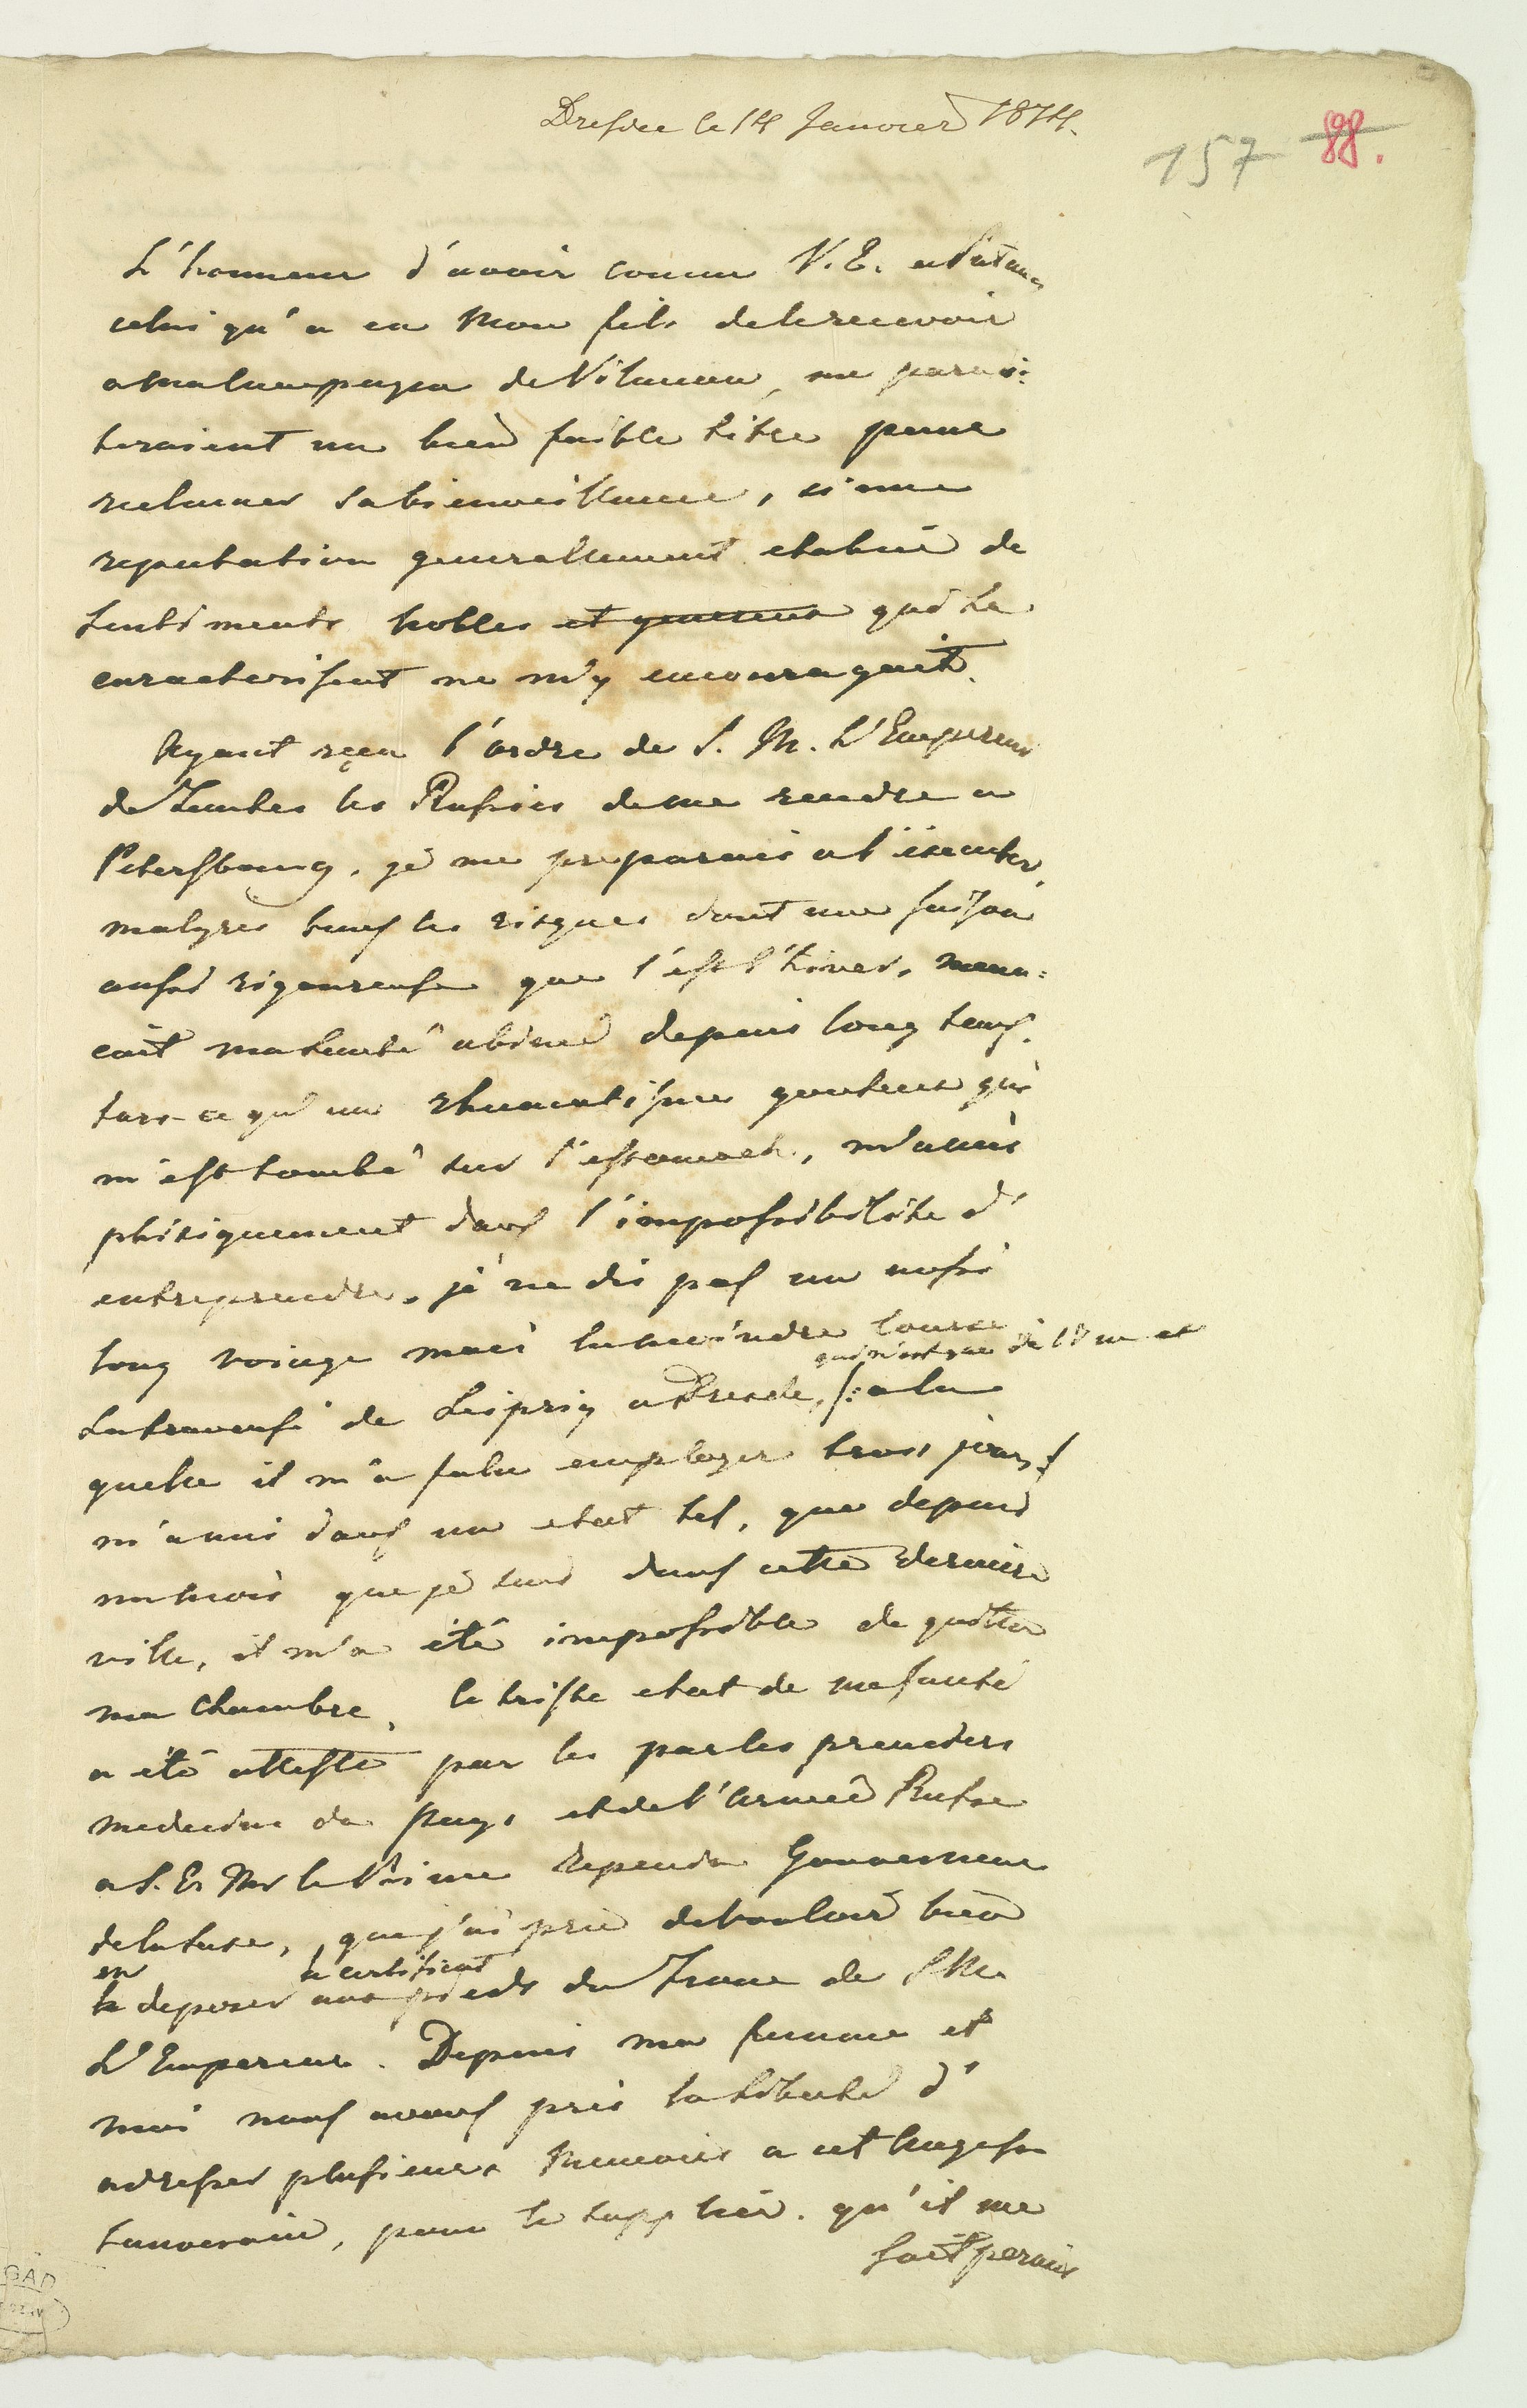 Dresdee le 14 Janvier 1814.
157 88.
L'honneur d'avoir connu V. E. a
celui qu'a eu Mon fils de le recevoir
a ma campagne de Vilanow, me paroi:
teraient un bien faible titre pour
reclamer sa bienveillance, si une
reputation generallement etablie de
sentiments nobles et genereux qui la
caracterisent ne m'y encouragait.
Ayant reçu l'ordre de S. M. L'Empereur
de Toutes les Russies de me rendre a
Petersbourg, je me preparais a l'éxecuter,
malgres tous les risques dont une saison
aussi rigoureuse que l'est l'hiver, mena=
cait ma santé abimé depuis long tems.
lors-ce qu'un rhumatisme gouteux qui
m'est tombé sur l'estomach, m'a mis
phisiquement dans l'impossibilite d'
entreprendre, je ne dis pas un aussi
long voiage mais la moindre course
qui n'est que de 18 m et
la traversé de Leipzig a Dresde, /: a la
quelle il m'a falu employer trois jours :/
m'a mis dans un etat tel, que depuis
un mois que je suis dans cette derniere
ville, il m'a été impossible de quitter
ma chambre, le triste etat de ma santé
a été attesté par les par les premiers
medecins du pays et de l'Armée Russe
a S. E. Mr le Prince Repnin Gouverneur
de la Saxe, que j'ai prié de vouloir bien
en le certificat
le deposer aux pieds du Trone de S M
L'Empereur. Depuis ma femme et
moi nous avons pris la liberté d'
adresser plusieurs Memoires a cet Auguste
souverain, pour le supplier qu'il me
soit permis